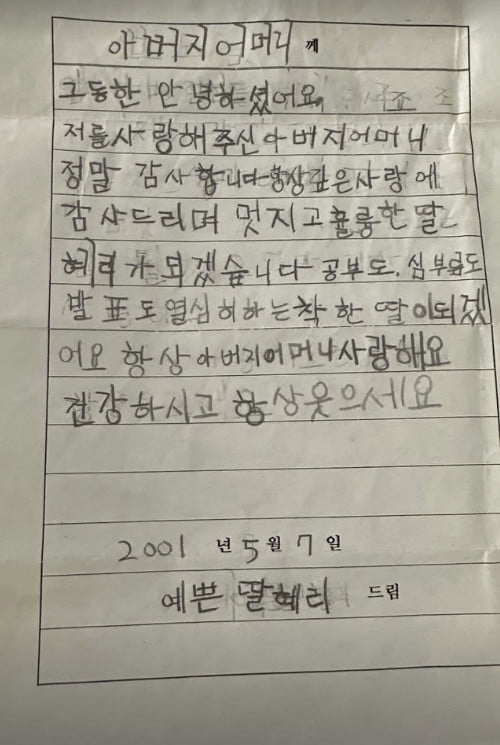 아버지어머니께
그동한 안녕하셨어요
저를사랑해주신아버지어머니
정말 감사합니다항상깊은사랑에
감사드리며 멋지고훌륭한딸
혜리가되겠습니다 공부도.심부름도
발표도열심히하는착한딸이되겠
어요 항상아버지어머니사랑해요
건강하시고 항상웃으세요
2001 년 5 월 7 일
예쁜딸혜리 드림